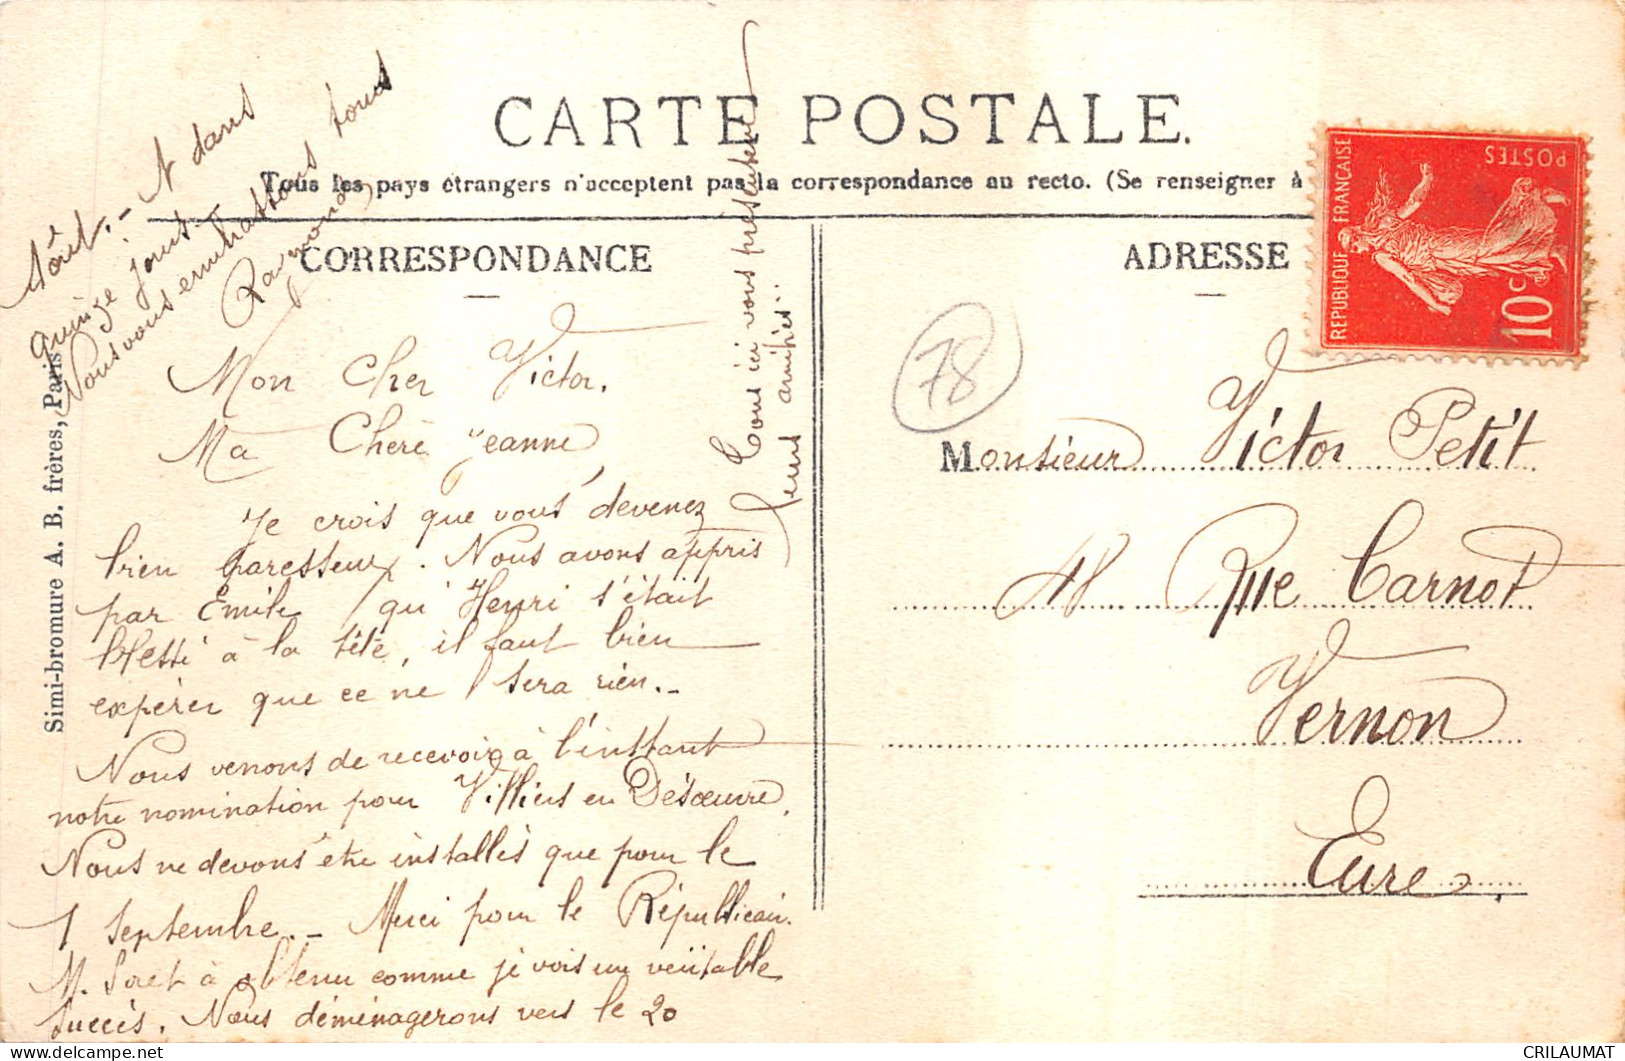 CARTE POSTALE.
Tous les pays étrangers n'acceptent pas la correspondance au recto. (Se renseigner à
CORRESPONDANCE
ADRESSE
REPUBLIQUE FRANÇAISE
POSTES
10 C
78
Mon Cher Victor.
Ma Chère Jeanne
Je crois que vous devenez
bien paresseux. Nous avons appris
par Emile qu'Henri s'était
blessé à la tête, il faut bien
expérer que ce ne sera rien. _
Nous venons de recevoir à l'instant
notre nomination pour Villiers en Désoeuvre.
Nous ne devons être installés que pour le
1 Septembre. _ Merci pour le Républicain.
M. Soret à obtenu comme je vois un véritable
succès. Nous déménagerons vers le 20
Aôut. _ A dans
quinze jours.
Nous vous embrassons tous
Raymond
Tous ici vous présentent
leurs amitiés..
Monsieur Victor Petit
48 Rue Carnot
Vernon
Eure
Simi-bromure A. B. frères, Paris
CRILAUMAT